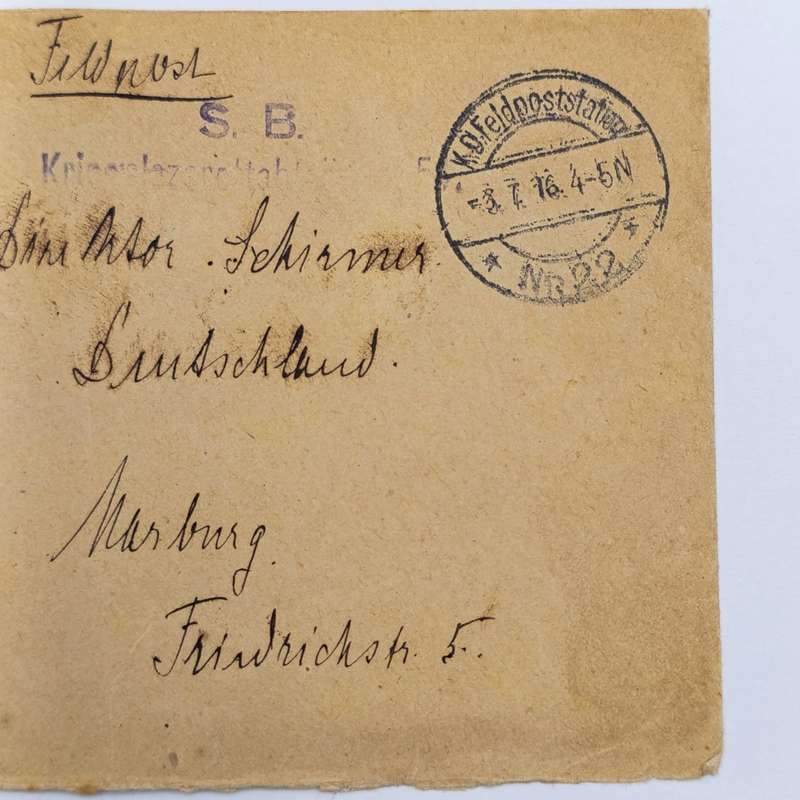 Feldpost
S. B.
K.D. Feldpoststation
-3.7.16. 4-5N
* NR 22 *
Direktor Schirmer
Deutschland.
Marburg.
Friedrichstr. 5.